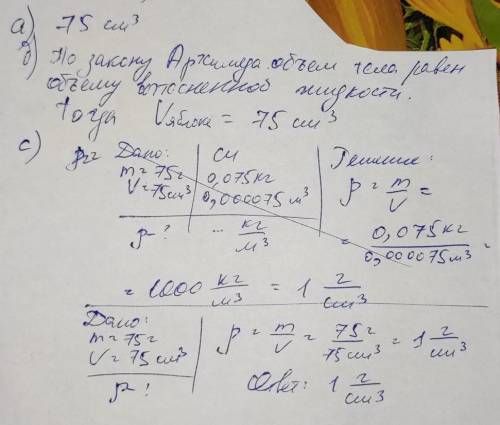 а) 75 см³
б) По закону Архимеда объем тела равен
объему вытесненной жидкости.
Тогда Vяблока = 75 см³
c) Дано: СИ Решение:
m = 75г 0,075кг
V = 75см³ 0,000075 м³
ρ = m/V =
ρ - ? ... кг/м³
= 0,075кг/0,000075м³ =
= 1000 кг/м³ = 1 г/см³
Дано:
m = 75г
V = 75 см³
ρ - ?
ρ = m/V = 75г/75см³ = 1 г/см³
Ответ: 1 г/см³